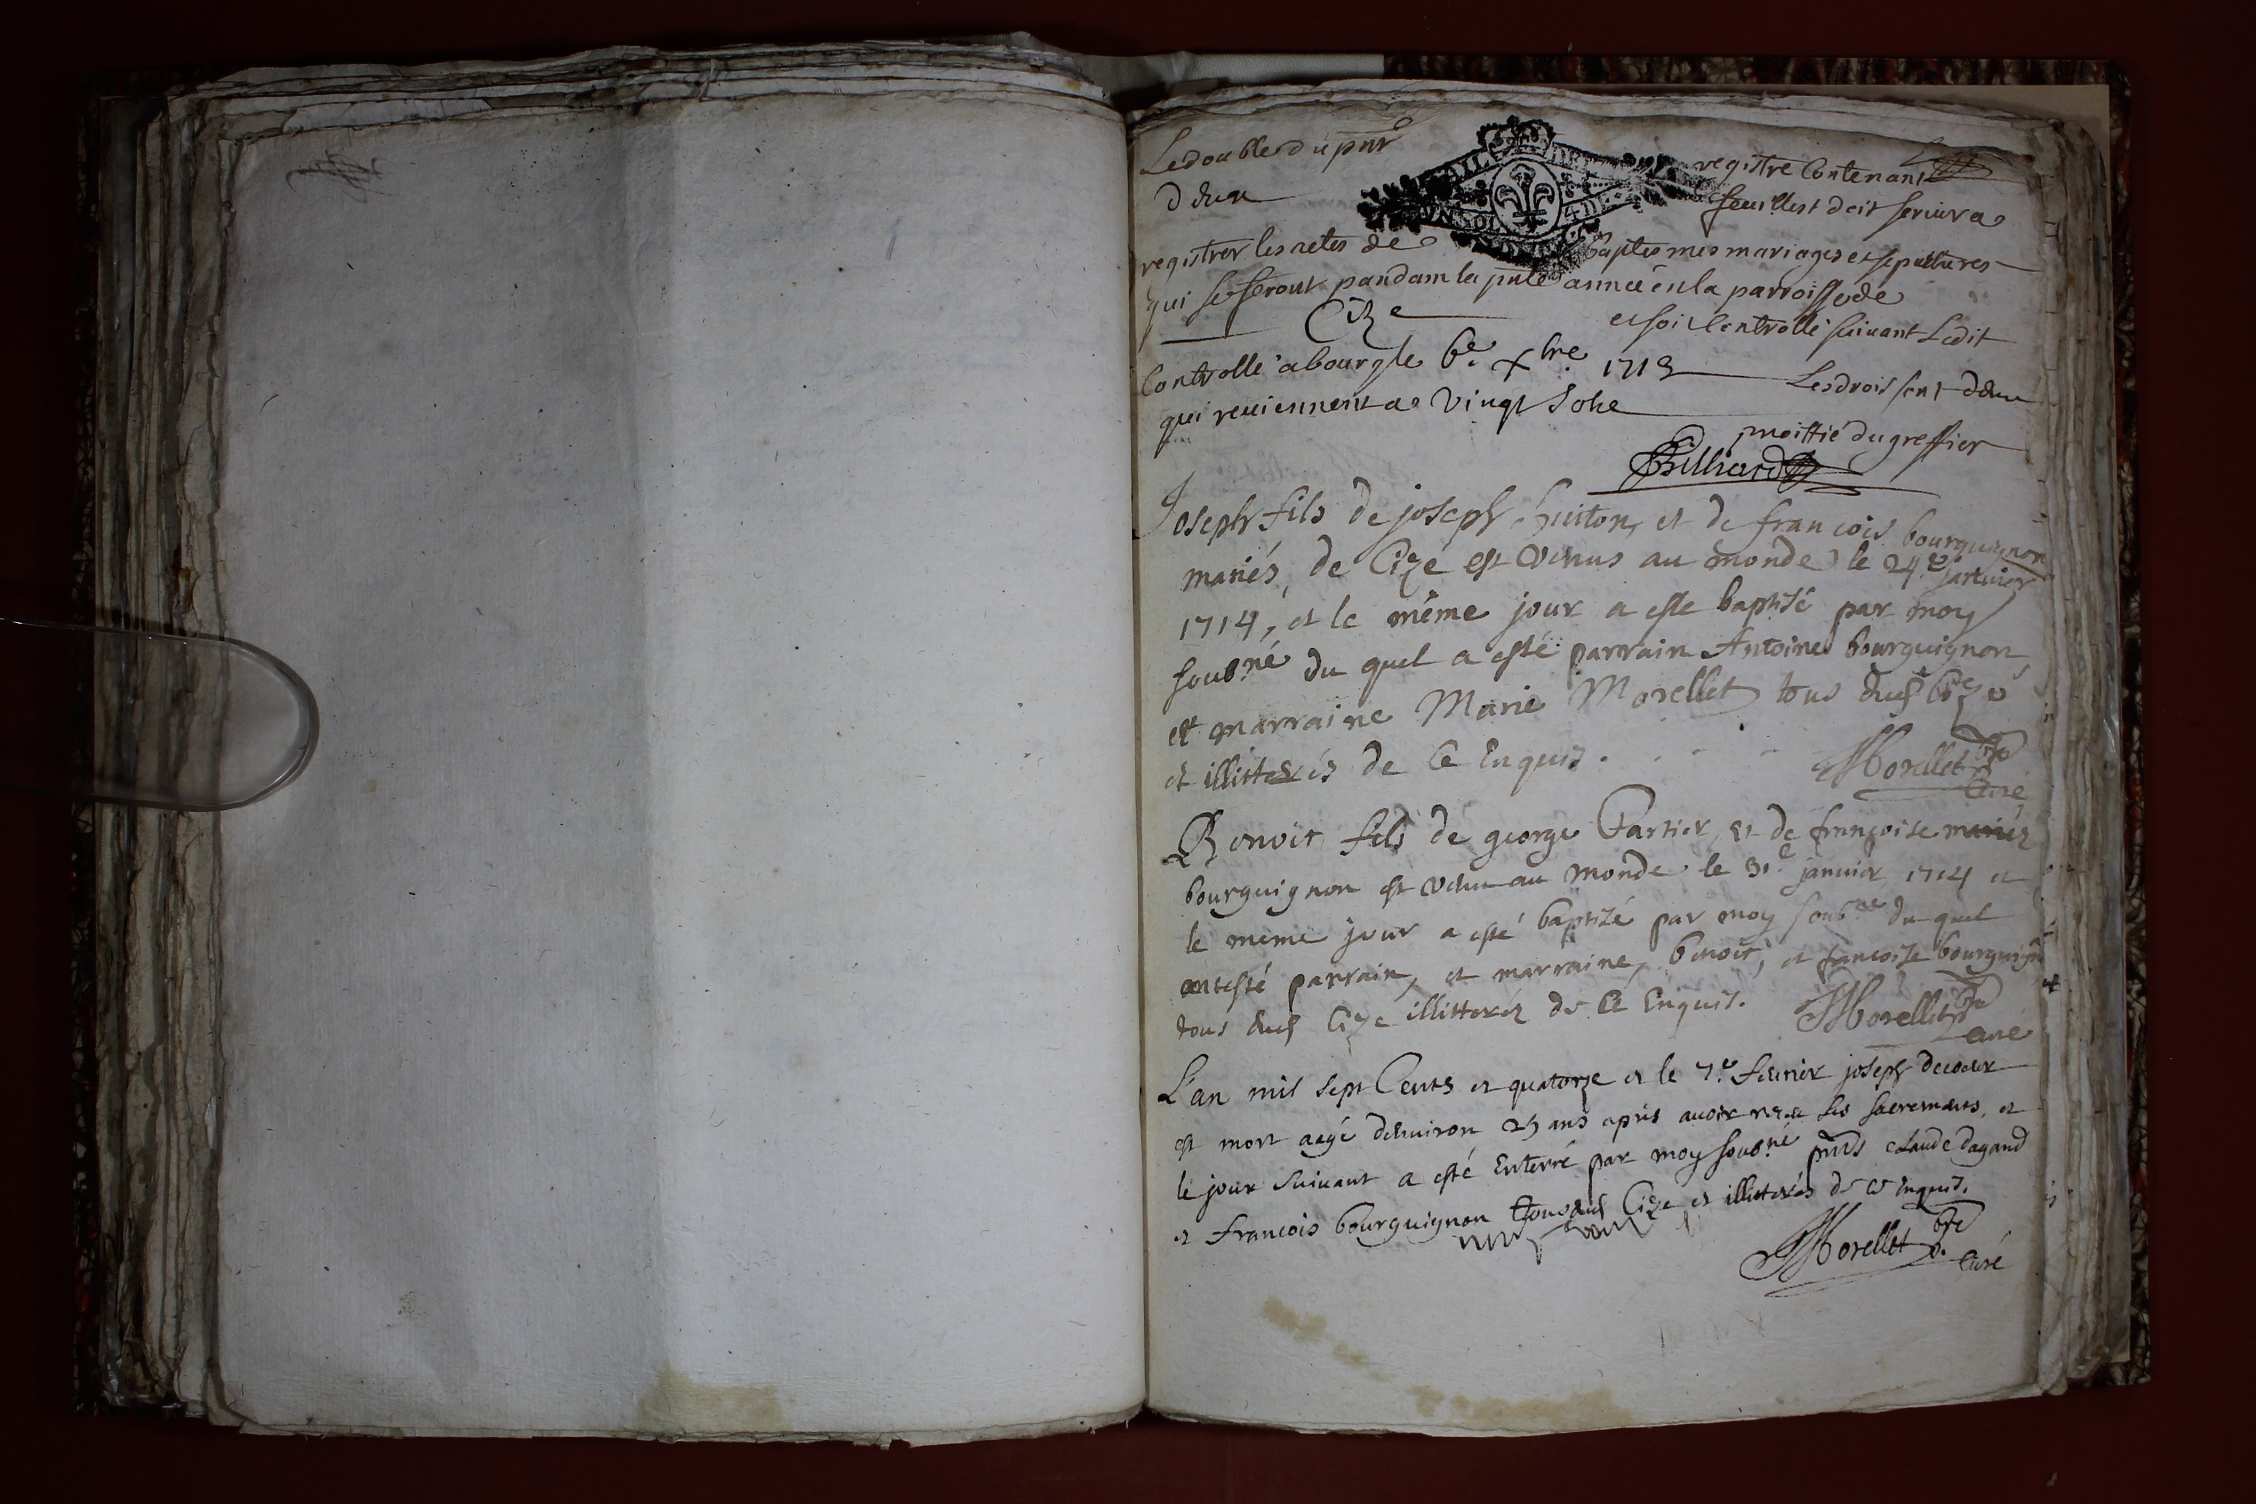 Le double du pnt registre Contenant
deux feuillest doit servir a
registrer les actes de baptesmes mariages et sepultures
qui se feront pandam la pnte année en la parroisse de
Cize et soit Controllé suivant Ledit
Controllé a bourg le 6e xbre 1713 Les drois sont deux
qui reviennent a vingt sols
moittié du greffier
Joseph fils de joseph et de francois bourguignon
mariés de Cize est venus au monde le 24e janvier
1714, et le même jour a este baptisé par moy
soubné du quel a esté parrain Antoine bourguignon
et marraine Marie Morellet tous dud Cize
et illitterés de Ce Enquis. Morellet ptre
Curé
Benoit fils de george Cartier et de françoise mariés
bourguignon est venu au monde le 31e janvier 1714 et
le meme jour a esté baptizé par moy soubné du quel
ont esté parrain, et marraine, benoit, et francoise bourguign
tous dud Cize illitterez de Ce Enquis. Morellet ptre
curé
L'an mil sept Cents et quatorze et le 7e fevrier joseph decoeur
est mort aagé denviron 25 ans apris avoir receu les sacremens, et
le jour suivant a esté Enterré par moy soubné pnts claude dagand
et francois bourguignon tous dud Cize et illitterés de ce enquis.
Morellet ptre
Curé